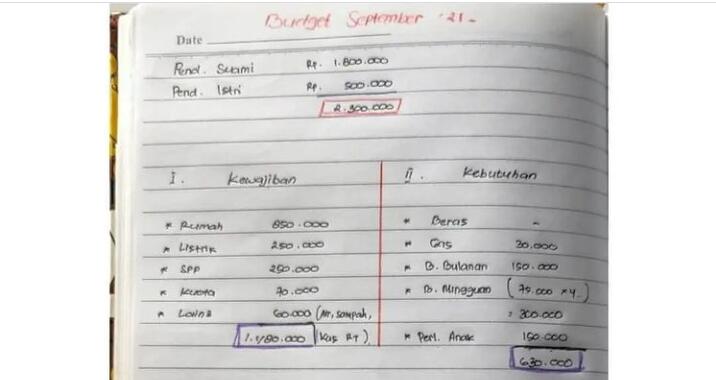 Budget September '21 -
Date
Pend. Suami Rp. 1.800.000
Pend. Istri Rp. 500.000
2.300.000
I. Kewajiban
* Rumah 850.000
* Listrik 250.000
* SPP 250.000
* Kuota 70.000
* Lainª 60.000 (Air, sampah,
1.480.000 Kas RT)
II. Kebutuhan
* Beras -
* Gas 30.000
* B. Bulanan 150.000
* B. Mingguan (75.000 x 4)
= 300.000
* Perl. Anak 150.000
630.000